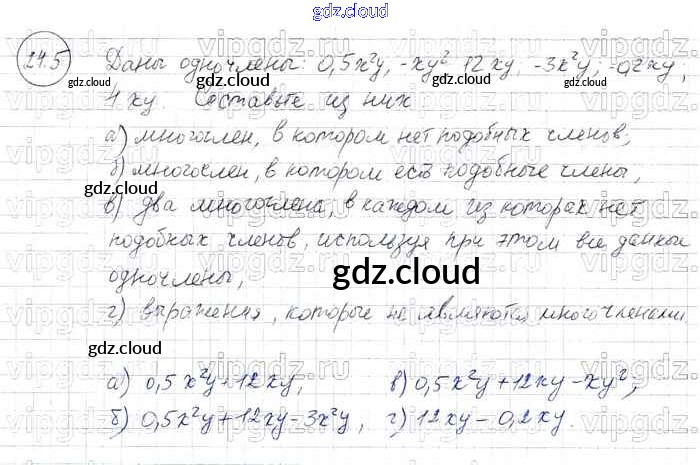 gdz.cloud
24.5 Даны одночлены: 0,5x²y, -xy² 12xy, -3x²y, -0,2xy,
gdz.cloud gdz.cloud
xy. Составьте из них
а) многочлен, в котором нет подобных членов;
б) многочлен, в котором есть подобные члены,
gdz.cloud
в) два многочлена, в каждом из которых нет
подобных членов, используя при этом все данные
одночлены,
gdz.cloud
г) выражения, которые не являются многочленами
gdz.cloud
а) 0,5x²y+12xy, в) 0,5x²y+12xy-xy²;
б) 0,5x²y+12xy-3x²y, г) 12xy-0,2xy.
gdz.cloud gdz.cloud